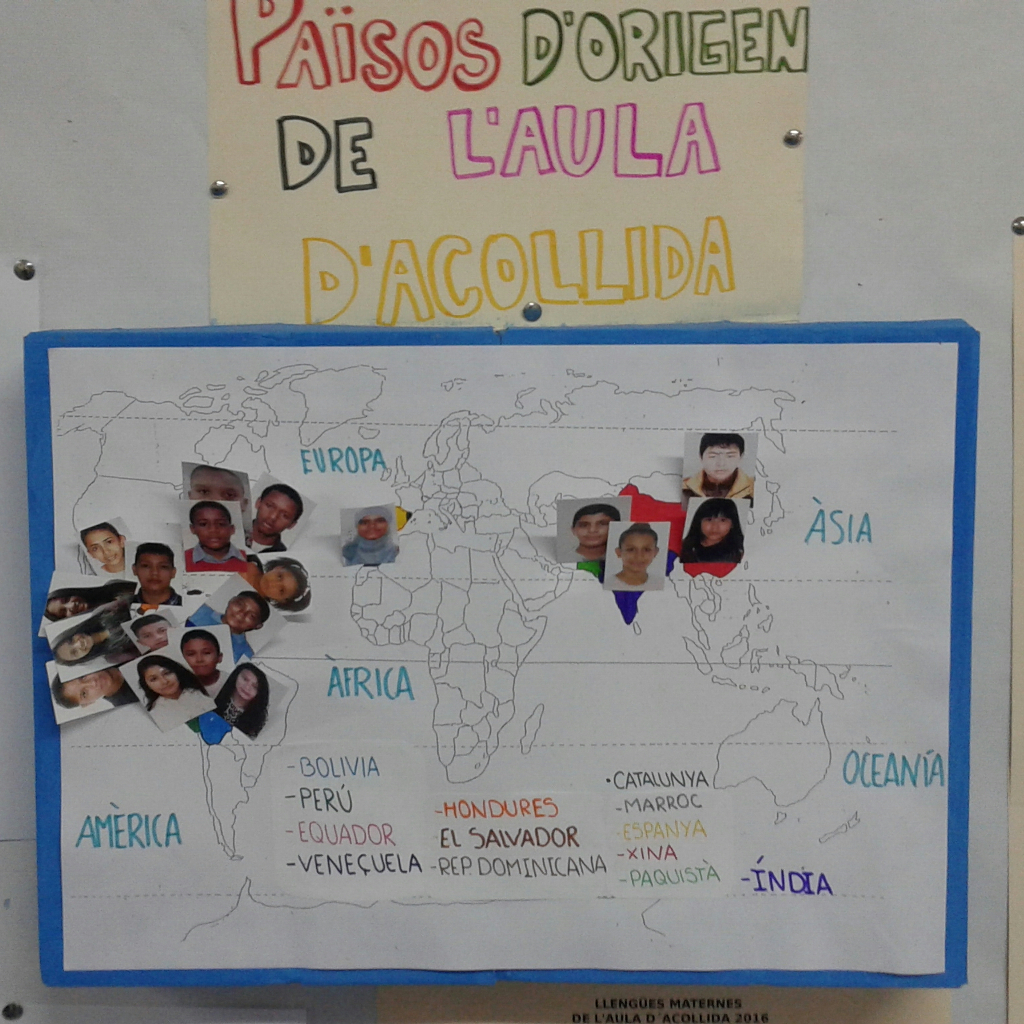 PAÏSOS D'ORIGEN
DE L'AULA
D'ACOLLIDA
EUROPA
ÀSIA
ÀFRICA
OCEANÍA
AMÈRICA
-BOLIVIA
-PERÚ
-EQUADOR
-VENEÇUELA
-HONDURES
EL SALVADOR
-REP. DOMINICANA
·CATALUNYA
-MARROC
-ESPANYA
-XINA
-PAQUISTÀ
-ÍNDIA
LLENGÜES MATERNES
DE L'AULA D'ACOLLIDA 2016